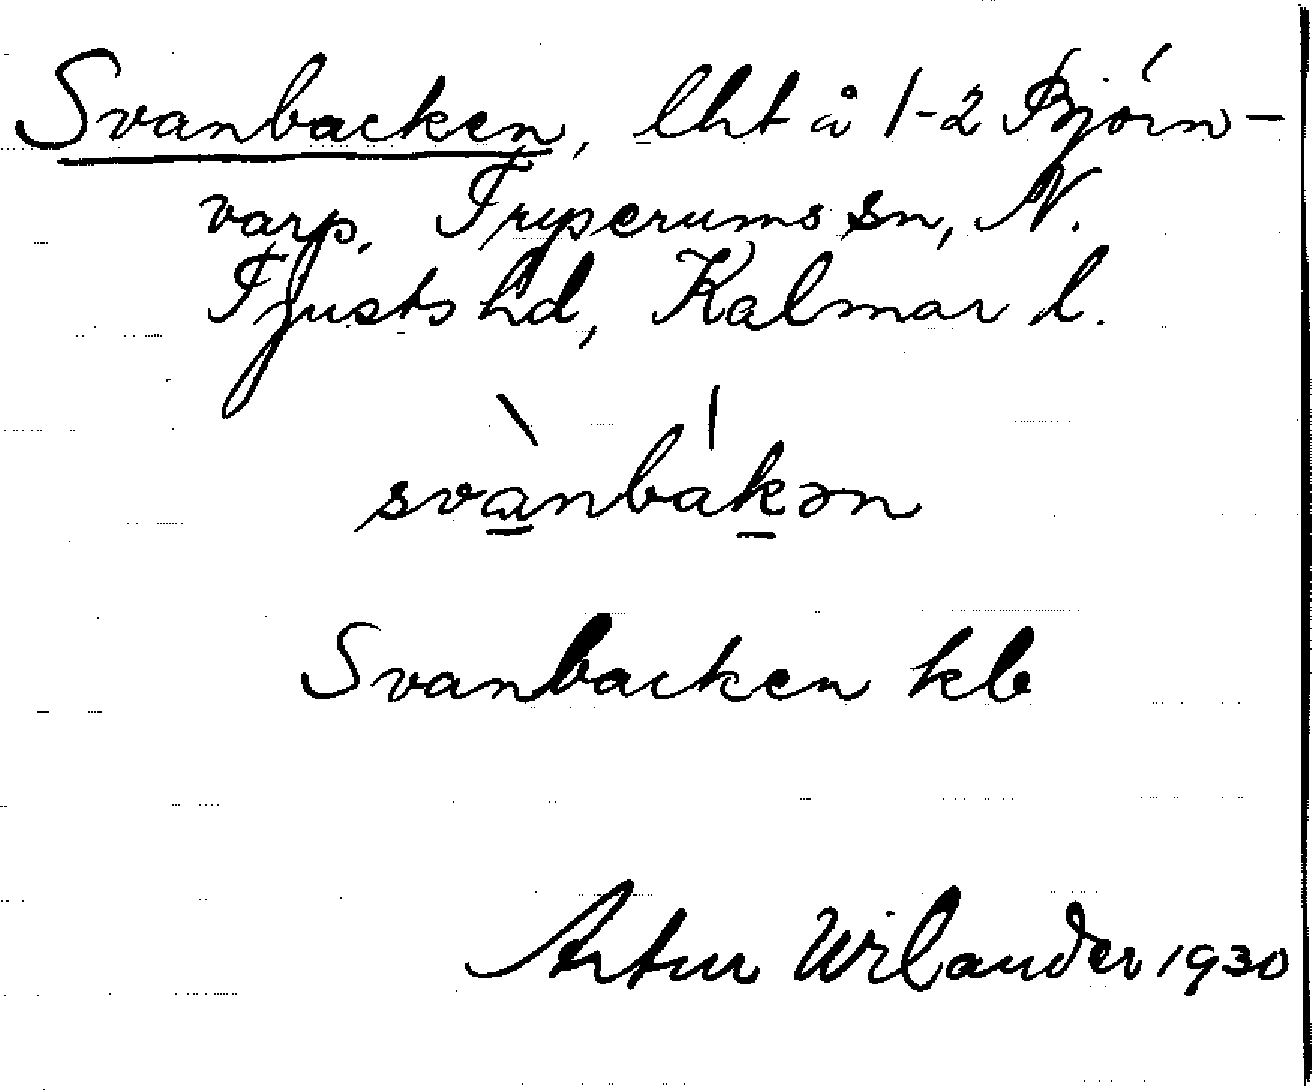 Svanbacken, lht å 1-2 Björn-
varp, Tryserums sn, N.
Tjusts hd, Kalmar l.
svànbákən
Svanbacken kb
Artur Wilander 1930